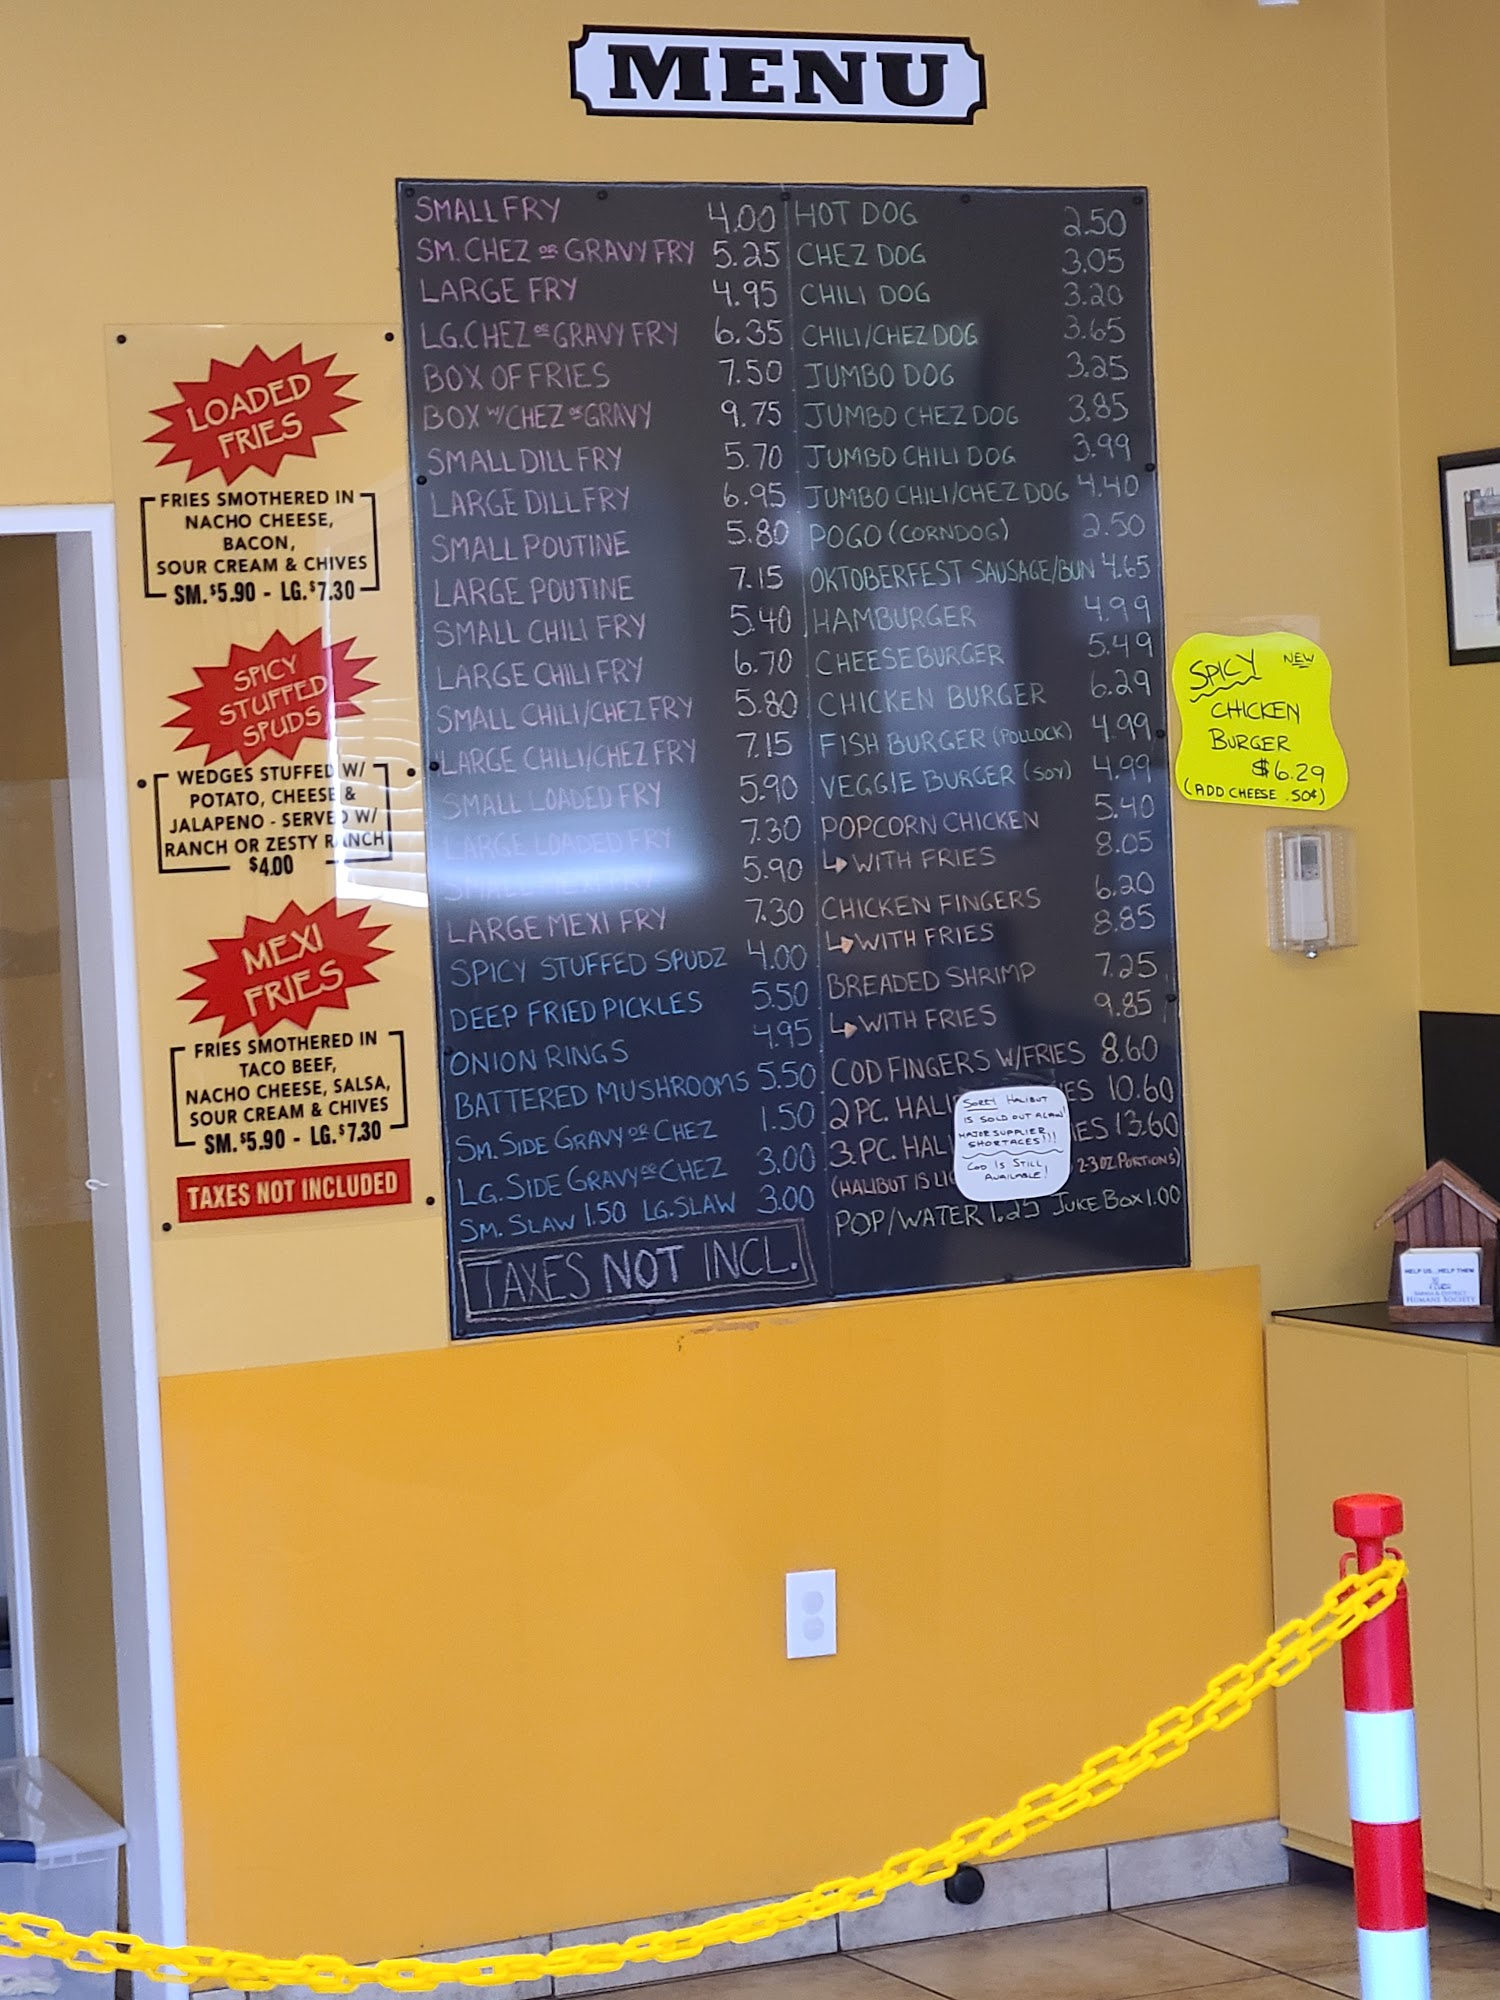 MENU
LOADED
FRIES
FRIES SMOTHERED IN
NACHO CHEESE,
BACON,
SOUR CREAM & CHIVES
SM. $5.90 - LG. $7.30
SPICY
STUFFED
SPUDS
WEDGES STUFFED W/
POTATO, CHEESE &
JALAPENO - SERVED W/
RANCH OR ZESTY RANCH
$4.00
MEXI
FRIES
FRIES SMOTHERED IN
TACO BEEF,
NACHO CHEESE, SALSA,
SOUR CREAM & CHIVES
SM. $5.90 - LG. $7.30
TAXES NOT INCLUDED
SMALL FRY 4.00
SM. CHEZ OR GRAVY FRY 5.25
LARGE FRY 4.95
LG. CHEZ OR GRAVY FRY 6.35
BOX OF FRIES 7.50
BOX W/ CHEZ OR GRAVY 9.75
SMALL DILL FRY 5.70
LARGE DILL FRY 6.95
SMALL POUTINE 5.80
LARGE POUTINE 7.15
SMALL CHILI FRY 5.40
LARGE CHILI FRY 6.70
SMALL CHILI/CHEZ FRY 5.80
LARGE CHILI/CHEZ FRY 7.15
SMALL LOADED FRY 5.90
LARGE LOADED FRY 7.30
SMALL MEXI FRY 5.90
LARGE MEXI FRY 7.30
SPICY STUFFED SPUDZ 4.00
DEEP FRIED PICKLES 5.50
ONION RINGS 4.95
BATTERED MUSHROOMS 5.50
SM. SIDE GRAVY OR CHEZ 1.50
LG. SIDE GRAVY OR CHEZ 3.00
SM. SLAW 1.50 LG. SLAW 3.00
TAXES NOT INCL.
HOT DOG 2.50
CHEZ DOG 3.05
CHILI DOG 3.20
CHILI/CHEZ DOG 3.65
JUMBO DOG 3.25
JUMBO CHEZ DOG 3.85
JUMBO CHILI DOG 3.99
JUMBO CHILI/CHEZ DOG 4.40
POGO (CORNDOG) 2.50
OKTOBERFEST SAUSAGE/BUN 4.65
HAMBURGER 4.99
CHEESEBURGER 5.49
CHICKEN BURGER 6.29
FISH BURGER (POLLOCK) 4.99
VEGGIE BURGER (SOY) 4.99
POPCORN CHICKEN 5.40
↳ WITH FRIES 8.05
CHICKEN FINGERS 6.20
↳ WITH FRIES 8.85
BREADED SHRIMP 7.25
↳ WITH FRIES 9.85
COD FINGERS W/FRIES 8.60
2 PC. HALI IES 10.60
3. PC. HAL IES 13.60
(HALIBUT IS LI 2-3 OZ PORTIONS)
POP/WATER 1.25 JUKE BOX 1.00
SORRY HALIBUT
IS SOLD OUT AGAIN!
MAJOR SUPPLIER
SHORTAGES!!!
COD IS STILL
AVAILABLE!
SPICY NEW
CHICKEN
BURGER
$6.29
(ADD CHEESE .50¢)
HELP US...HELP THEM
HUMANE SOCIETY